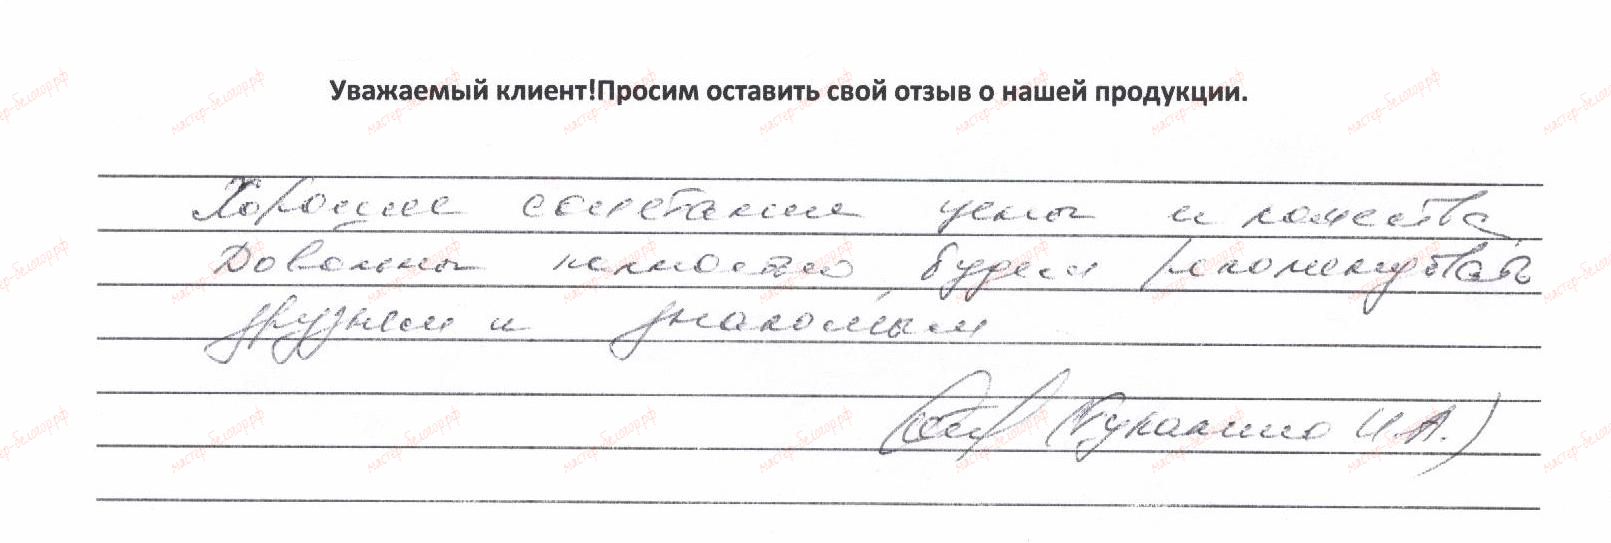 Уважаемый клиент!Просим оставить свой отзыв о нашей продукции.
Хорошее сочетание цены и качества
Довольны полностью, будем рекомендовать
друзьям и знакомым
И.А.)
мастер-белогор.рф